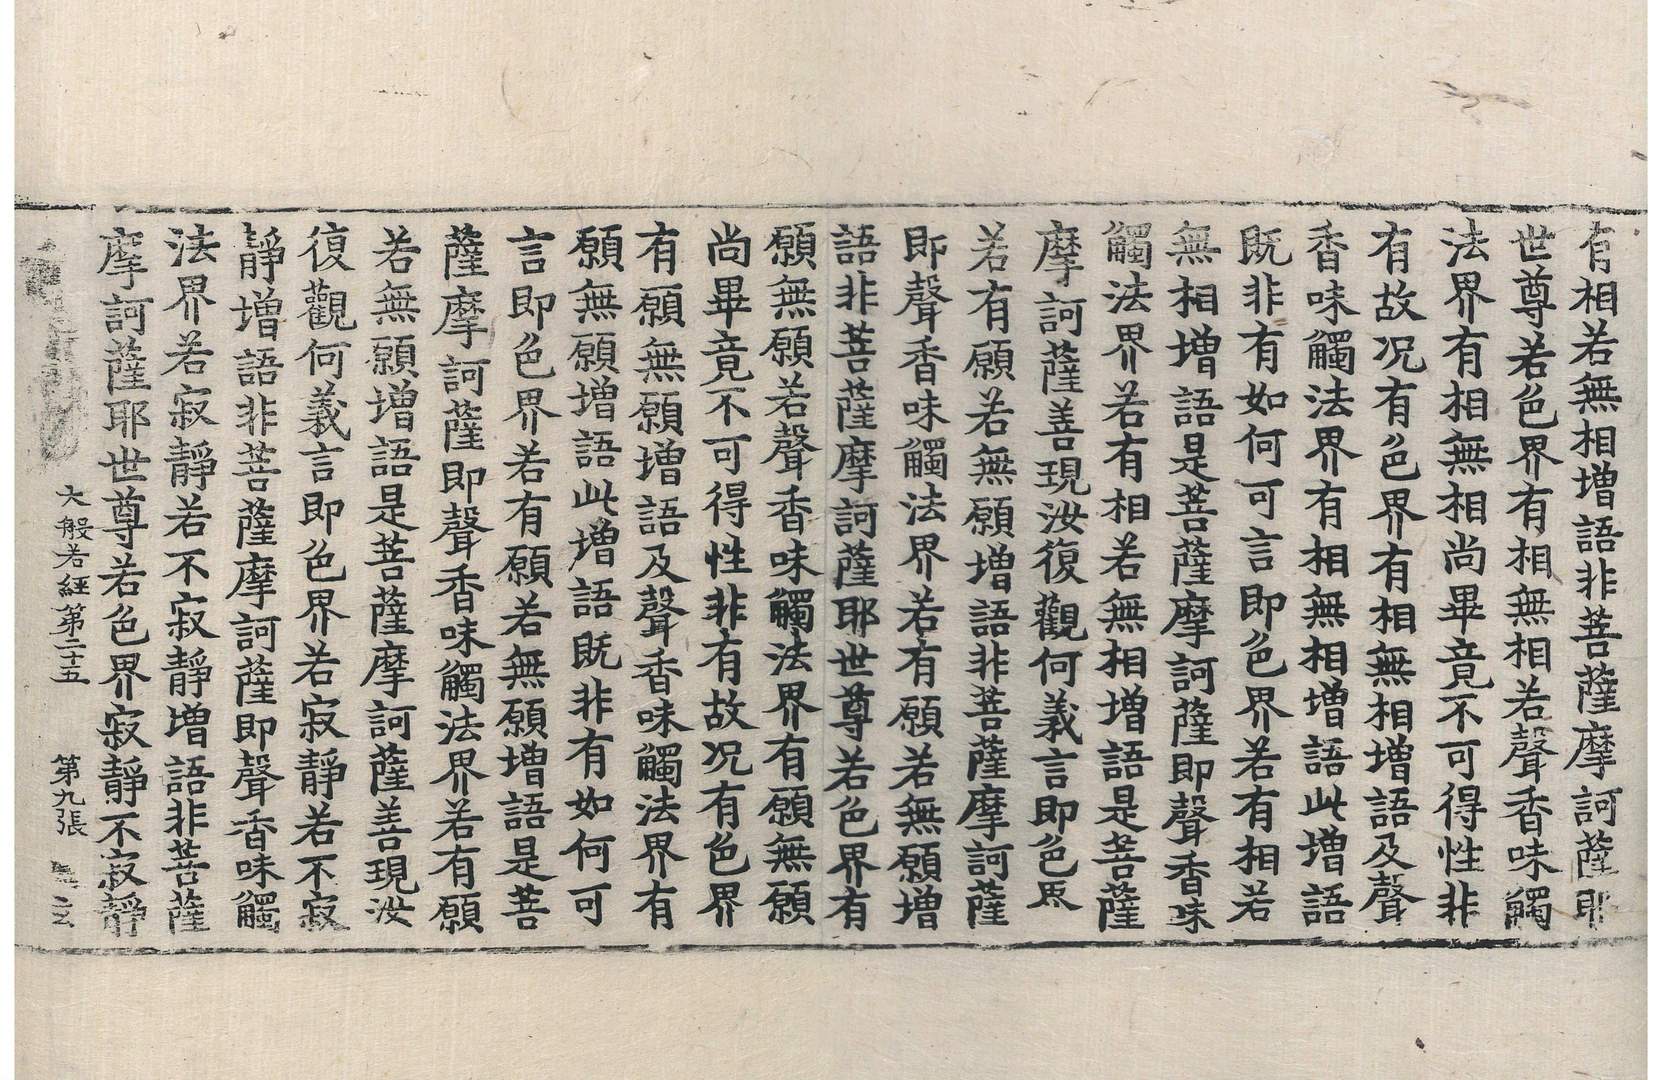 有相若無相增語非菩薩摩訶薩耶
世尊若色界有相無相若聲香味觸
法界有相無相尚畢竟不可得性非
有故况有色界有相無相增語及聲
香味觸法界有相無相增語此增語
既非有如何可言即色界若有相若
無相增語是菩薩摩訶薩即聲香味
觸法界若有相若無相增語是菩薩
摩訶薩善現汝復觀何義言即色界
若有願若無願增語非菩薩摩訶薩
即聲香味觸法界若有願若無願增
語非菩薩摩訶薩耶世尊若色界有
願無願若聲香味觸法界有願無願
尚畢竟不可得性非有故况有色界
有願無願增語及聲香味觸法界有
願無願增語此增語既非有如何可
言即色界若有願若無願增語是菩
薩摩訶薩即聲香味觸法界若有願
若無願增語是菩薩摩訶薩善現汝
復觀何義言即色界若寂靜若不寂
靜增語非菩薩摩訶薩即聲香味觸
法界若寂靜若不寂靜增語非菩薩
摩訶薩耶世尊若色界寂靜不寂靜
大般若經第二十五 第九張